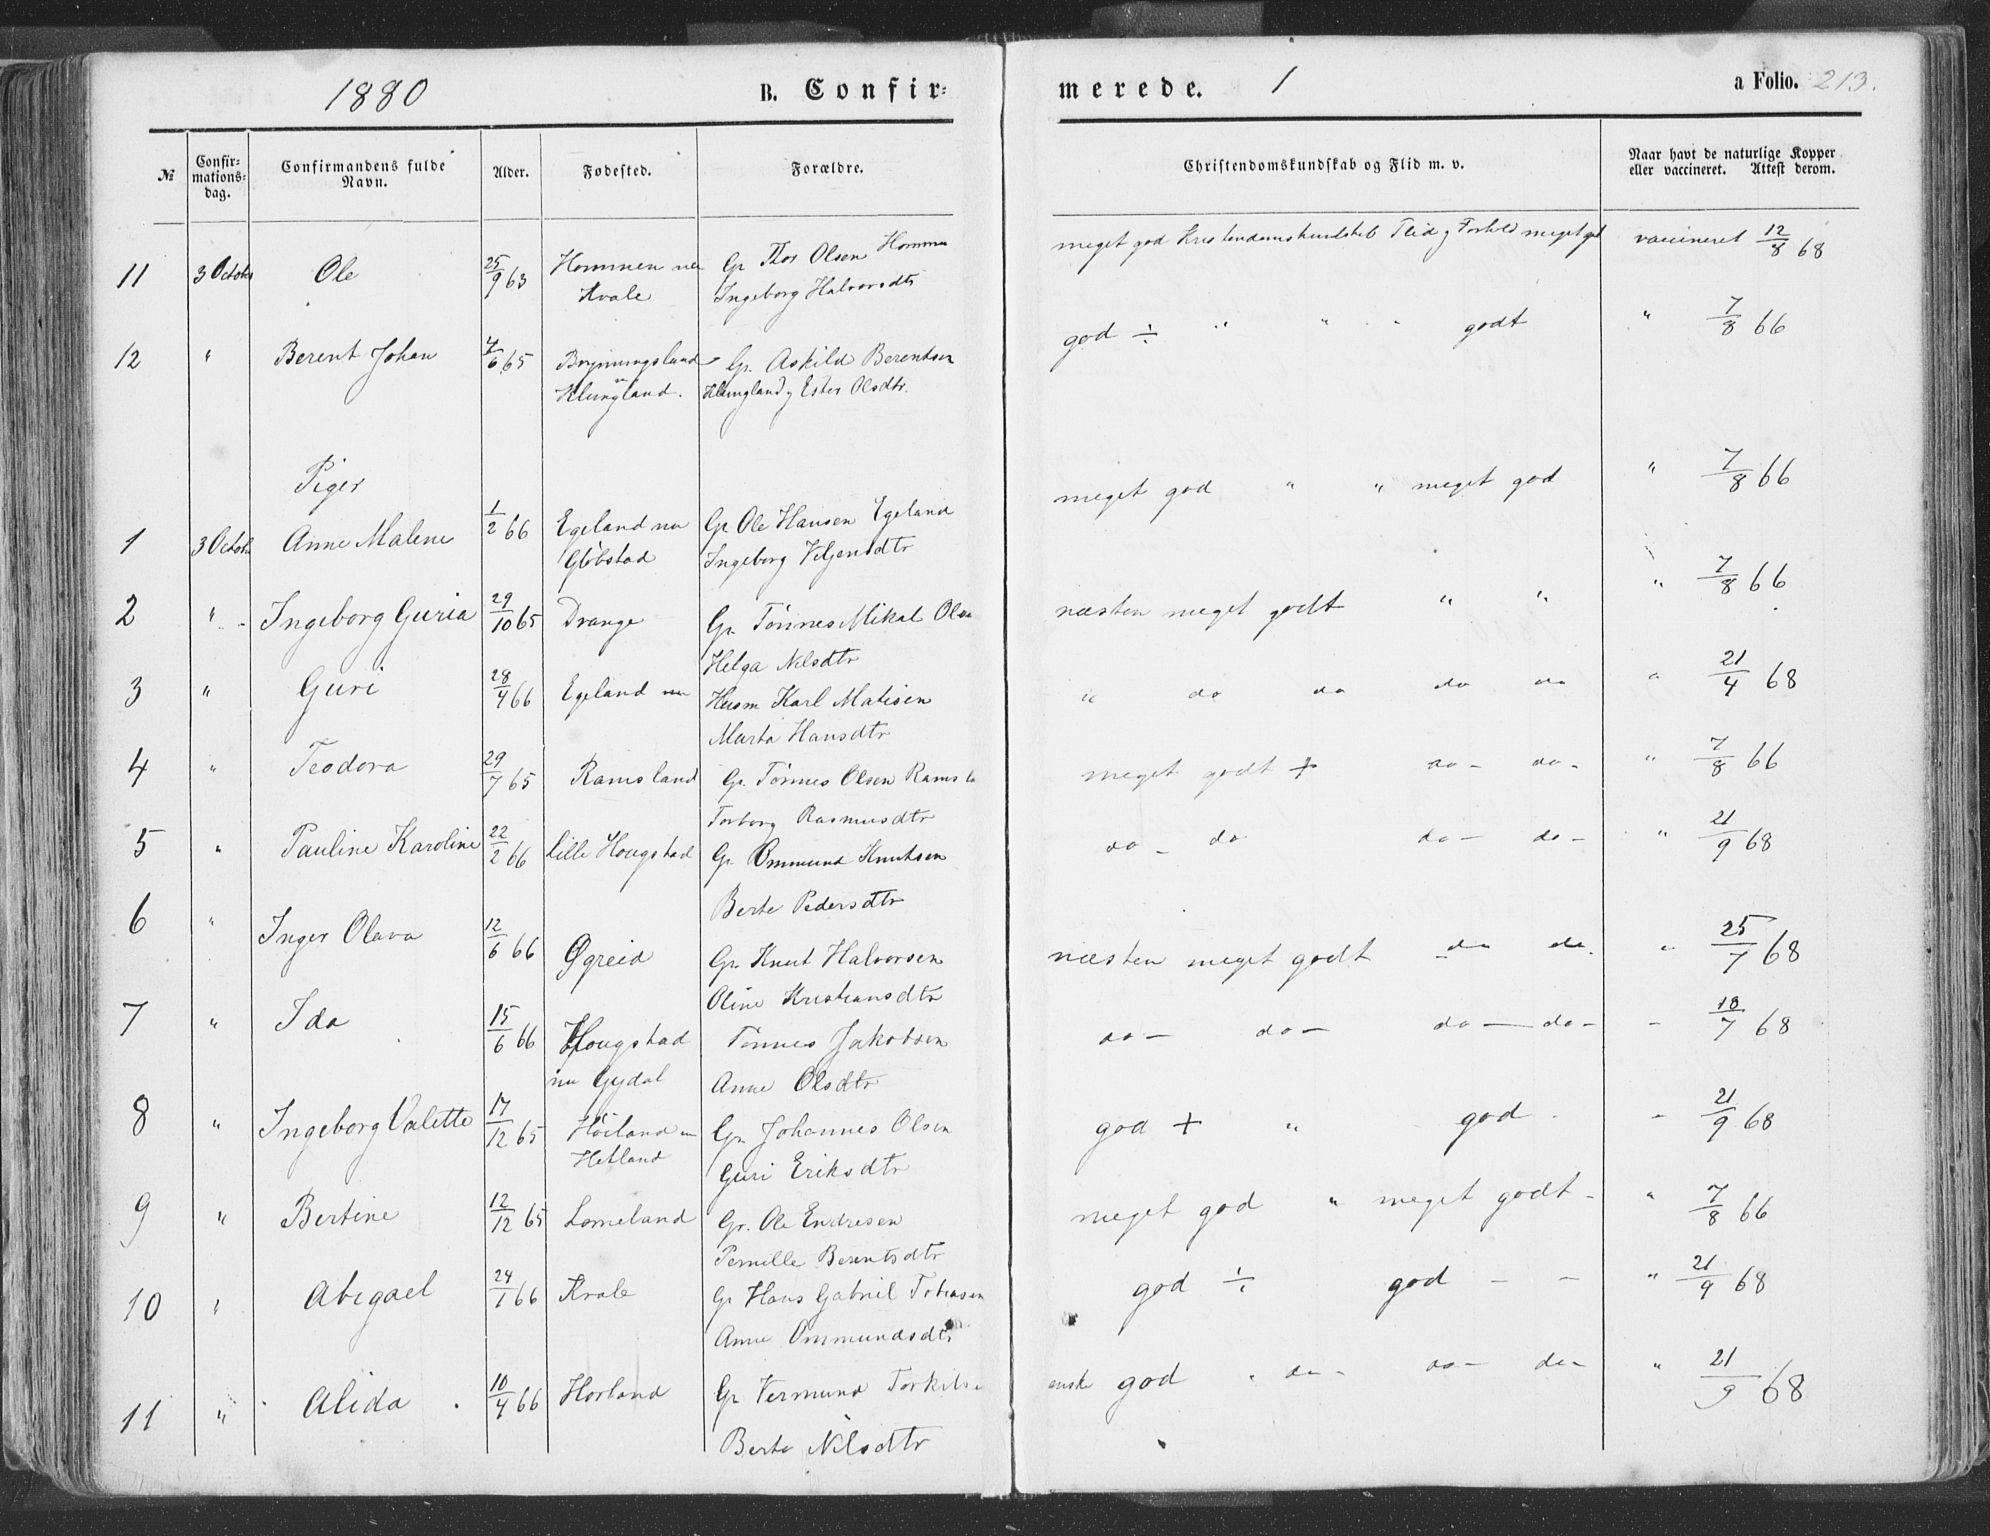 1880 B. Confir- merede. 1 a Folio. 213.
№ Confir-mations-dag. Confirmandens fulde Navn. Alder. Fødested. Forældre. Christendomskundskab og Flid m. v. Naar havt de naturlige Kopper eller vaccineret. Attest derom.
11 3 Octobr Ole 25/9 63 Hommen Gr. Thor Olsen Homme meget god Kristendomskundskab Flid og Forhold meget godt vaccineret 12/8 68
Kvale Ingeborg Halvorsdtr
12 " Berent Johan 4/6 65 Gr. Askild Berentsen god ÷ " " " godt " 7/8 66
Klungland. Klungland og Ester Olsdtr.
Piger
1 3 Octobr Anne Malene 1/2 66 Egeland nu Gr Ole Hansen Egeland meget god " " meget god " 7/8 66
Gløbstad Ingeborg Veljensdtr
2 " Ingeborg Guria 29/10 65 Drange Gr. Tønnes Mikal Olsen næsten meget godt " " " 7/8 66
Helga Nilsdtr
3 " Guri 28/4 66 Egeland nu Husm Karl Matisen " do do do do " 21/4 68
Marta Hansdtr
4 " Teodora 29/7 65 Ramsland Gr. Tønnes Olsen Ramsla meget godt + do - do - " 7/8 66
Torborg Rasmusdtr
5 " Pauline Karoline 22/2 66 Lille Hougstad Gr. Ommund Knutsen do - do do - do - " 21/9 68
Berte Pedersdtr
6 " Inger Olava 12/6 66 Øgreid Gr. Knut Halvorsen næsten meget godt do do. " 25/7 68
Oline Kristiansdtr
7 " Ida 15/6 66 Hougstad Tønnes Jakobsen do - do - do - do - - 18/7 68
nu Gydal Anne Olsdtr
8 " Ingeborg Valette 17/12 65 Høiland Gr. Johannes Olsen god + " god - 21/9 68
Hetland Guri Eriksdtr
9 " Bertine 12/12 65 Lomeland Gr. Ole Endresen meget god " meget godt - " 7/8 66
Pernille Berentsdtr
10 " Abigael 24/1 66 Kvale Gr Hans Gabriel Tobiasen god ÷ god - - " 21/9 68
Anne Ommundsdtr
11 " Alida 10/4 66 Horland Gr Vermund Torkils god " do - do - do - " 21/9 68
Berte Nilsdtr